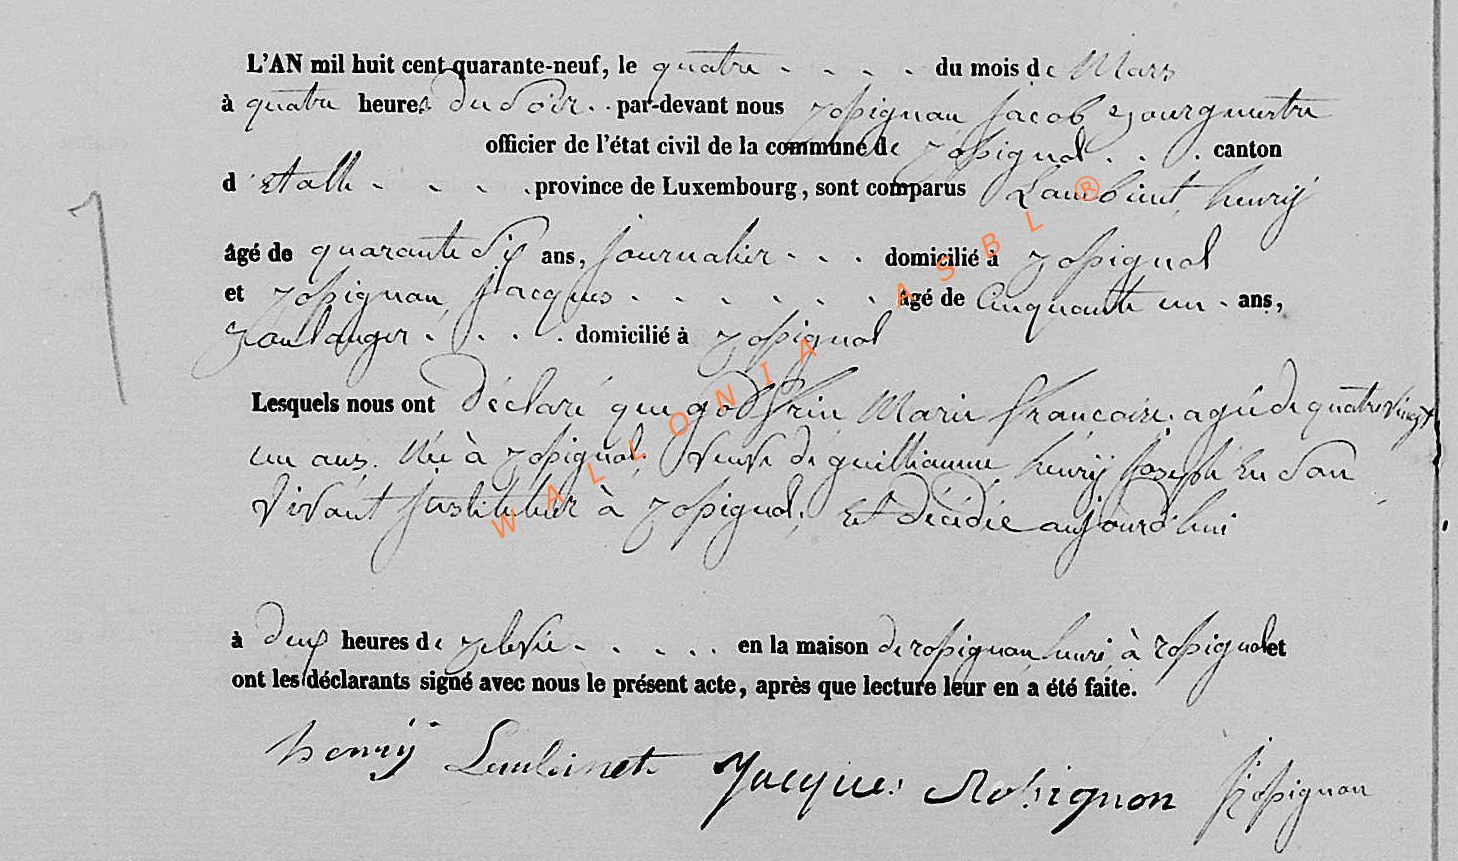 L'AN mil huit cent quarante-neuf, le quatre . . . . du mois de Mars
à quatre heures du Soir . . par-devant nous Rossignon Jacob Bourguestre
officier de l'état civil de la commune de Rossignol . . . canton
d'Etalle . . . . province de Luxembourg, sont comparus Lambinet henrÿ
âgé de quarante Six ans, Journalier . . . domicilié à Rossignol
et Rossignon Jacques . . . . . . . âgé de Cinquante un . ans,
Boulanger . . . . domicilié à Rossignol
Lesquels nous ont Déclaré que godfrin Marie francoise, agée de quatre Vingt
un ans. Née à Rossignol. Veuve de guilliaume henrÿ Joseph En Son
Vivant Instituteur à Rossignol. Et décédée aujourd'hui
à deux heures de . . . . . en la maison de rossignon henri à rossignol et
ont les déclarants signé avec nous le présent acte, après que lecture leur en a été faite.
henrÿ Lambinet Jacques Rossignon J Rossignon
WALLONIA ASBL ®